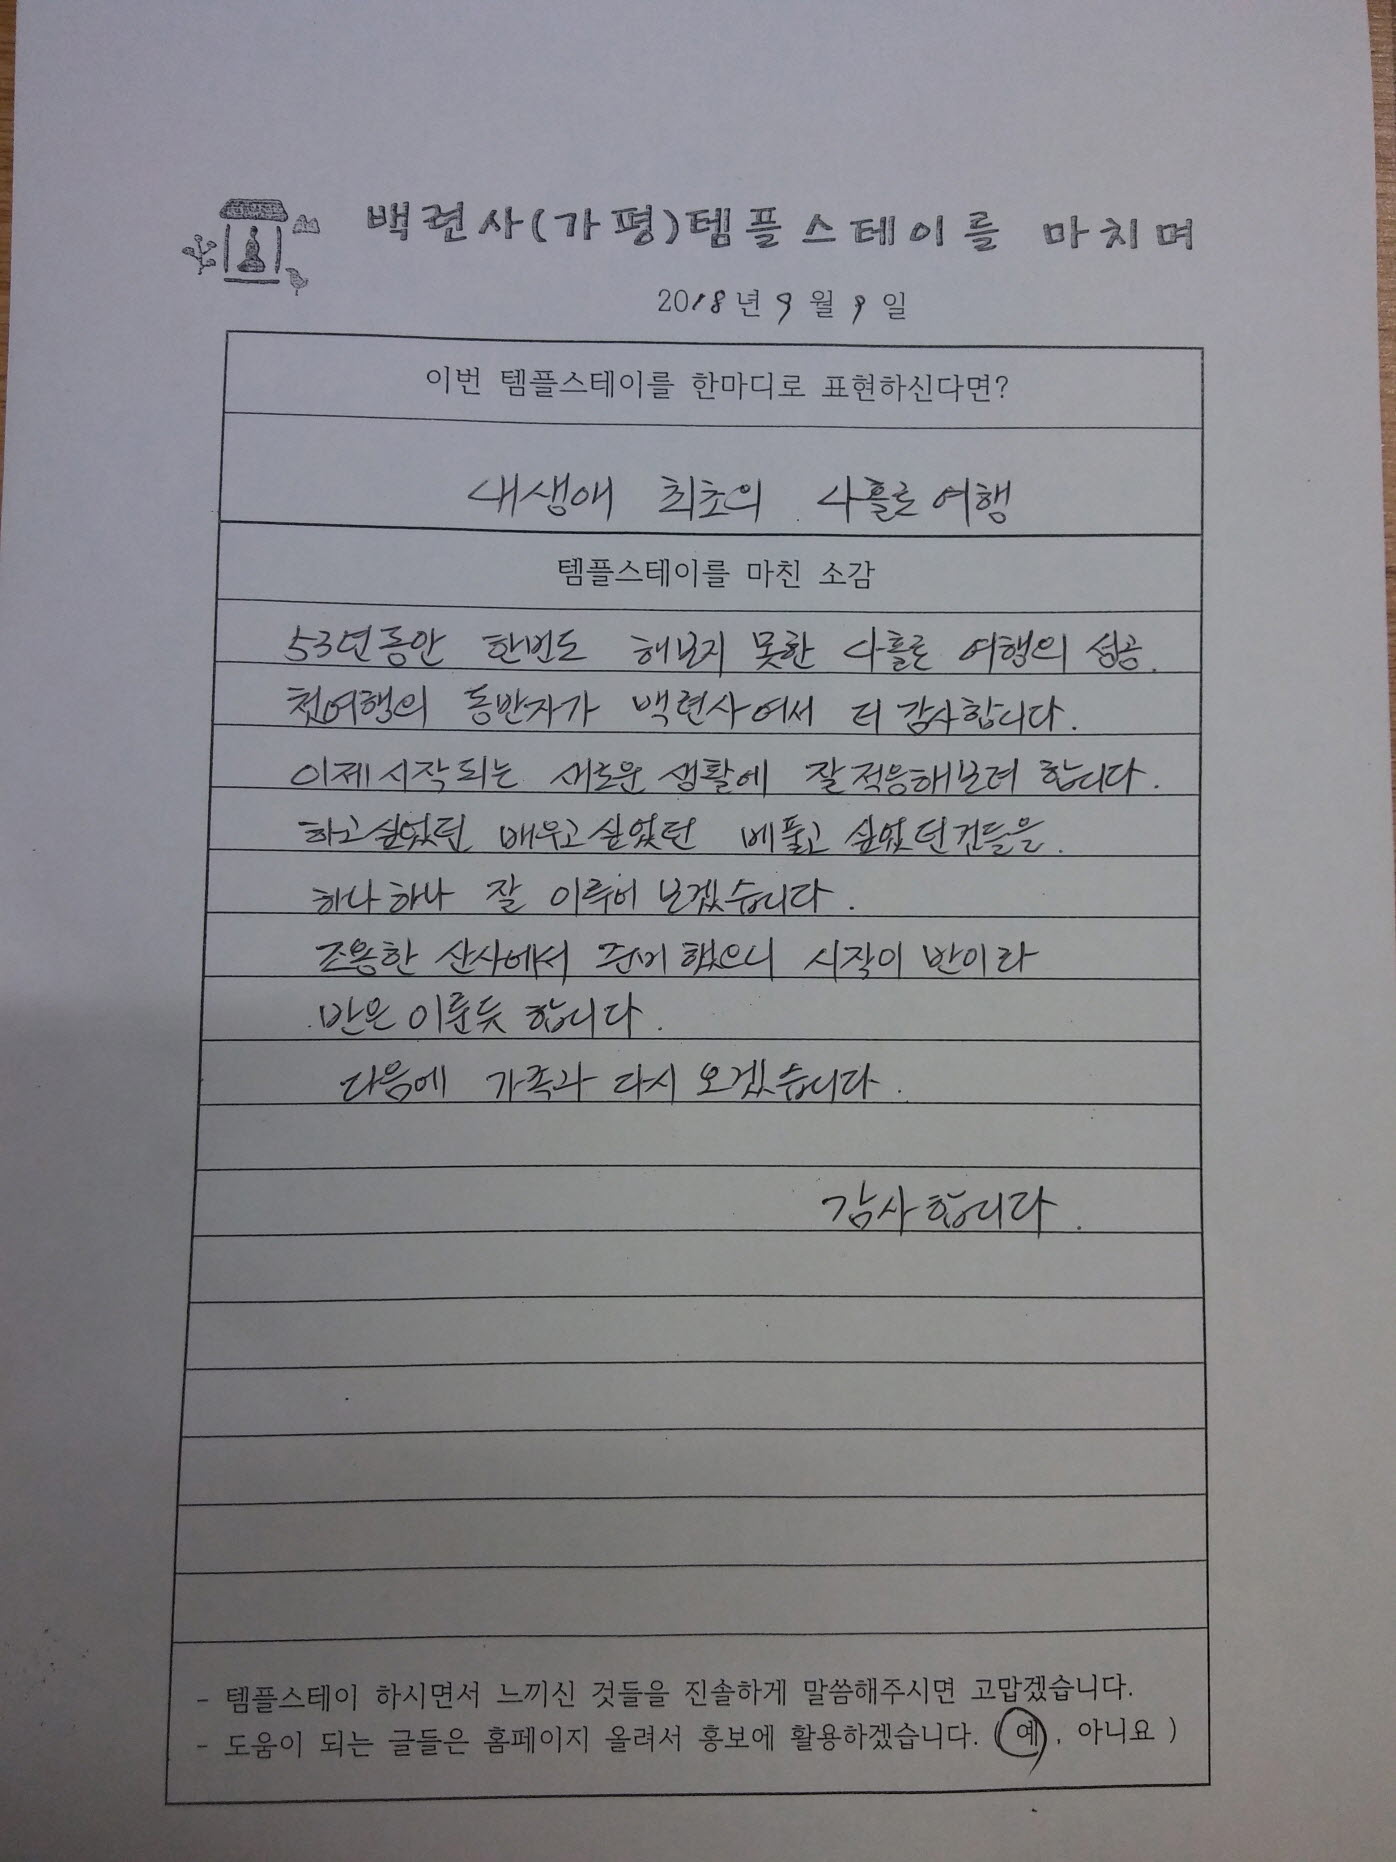 백련사(가평)템플스테이를 마치며
2018년 9월 9일
이번 템플스테이를 한마디로 표현하신다면?
내생애 최초의 나홀로 여행
템플스테이를 마친 소감
53년동안 한번도 해보지 못한 나홀로 여행의 성공.
첫여행의 동반자가 백련사여서 더 감사합니다.
이제 시작되는 새로운 생활에 잘 적응해보려 합니다.
하고싶었던 배우고싶었던 베풀고 싶었던것들을
하나하나 잘 이루어 보겠습니다.
조용한 산사에서 준비했으니 시작이 반이라
반은 이룬듯 합니다.
다음에 가족과 다시 오겠습니다.
감사합니다.
- 템플스테이 하시면서 느끼신 것들을 진솔하게 말씀해주시면 고맙겠습니다.
- 도움이 되는 글들은 홈페이지 올려서 홍보에 활용하겠습니다. (예, 아니요)